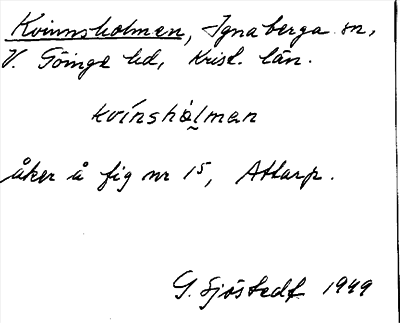 Kvinnsholmen, Ignaberga sn,
V. Göinge hd, Krist. län.
kvínshålman
åker å fig nr 15, Attarp.
G. Sjöstedt 1949